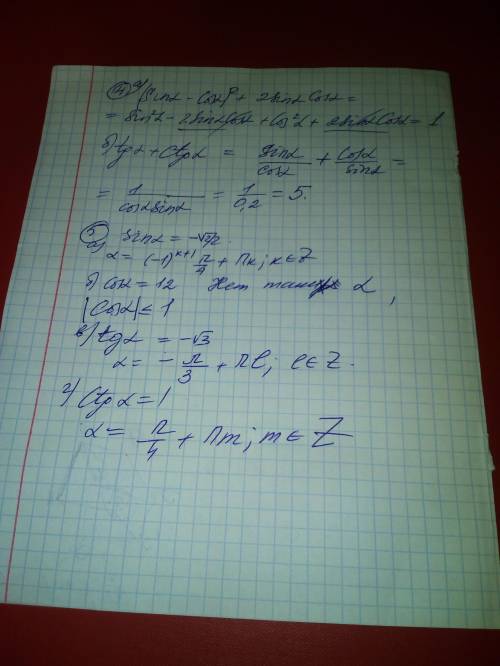 ④ а) (sinα - cosα)² + 2sinα cosα =
= sin²α - 2sinα cosα + cos²α + 2sinα cosα = 1
б) tgα + ctgα = sinα/cosα + cosα/sinα =
= 1/(cosα sinα) = 1/0,2 = 5.
⑤ а) sinα = -√2/2.
α = (-1)^(к+1) π/4 + πк; к ∈ Z
б) cosα = 12 Нет таких α,
|cosα| ≤ 1
в) tgα = -√3
α = - π/3 + πl; l ∈ Z.
г) ctgα = 1
α = π/4 + πm; m ∈ Z